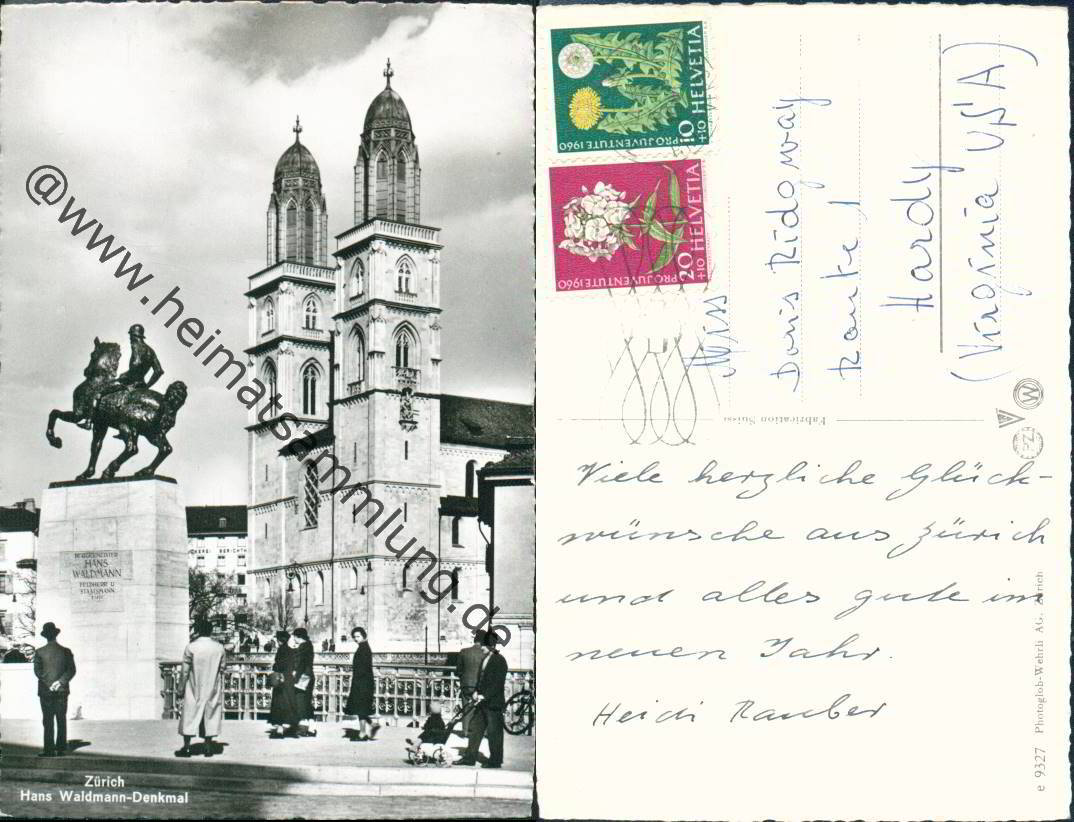 @www.heimatsammlung.de
BÜRGERMEISTER
HANS
WALDMANN
FELDHERR U
STAATSMANN
Zürich
Hans Waldmann-Denkmal
10
+10 HELVETIA
PRO JUVENTUTE 1960
20
+10 HELVETIA
PRO JUVENTUTE 1960
Miss
Doris Ridgway
Route 1
Hardy
(Virginia USA)
Fabrication Suisse
Viele herzliche Glück-
wünsche aus Zürich
und alles gute im
neuen Jahr.
Heidi Rauber
e 9327 Photoglob-Wehrli AG. Zürich